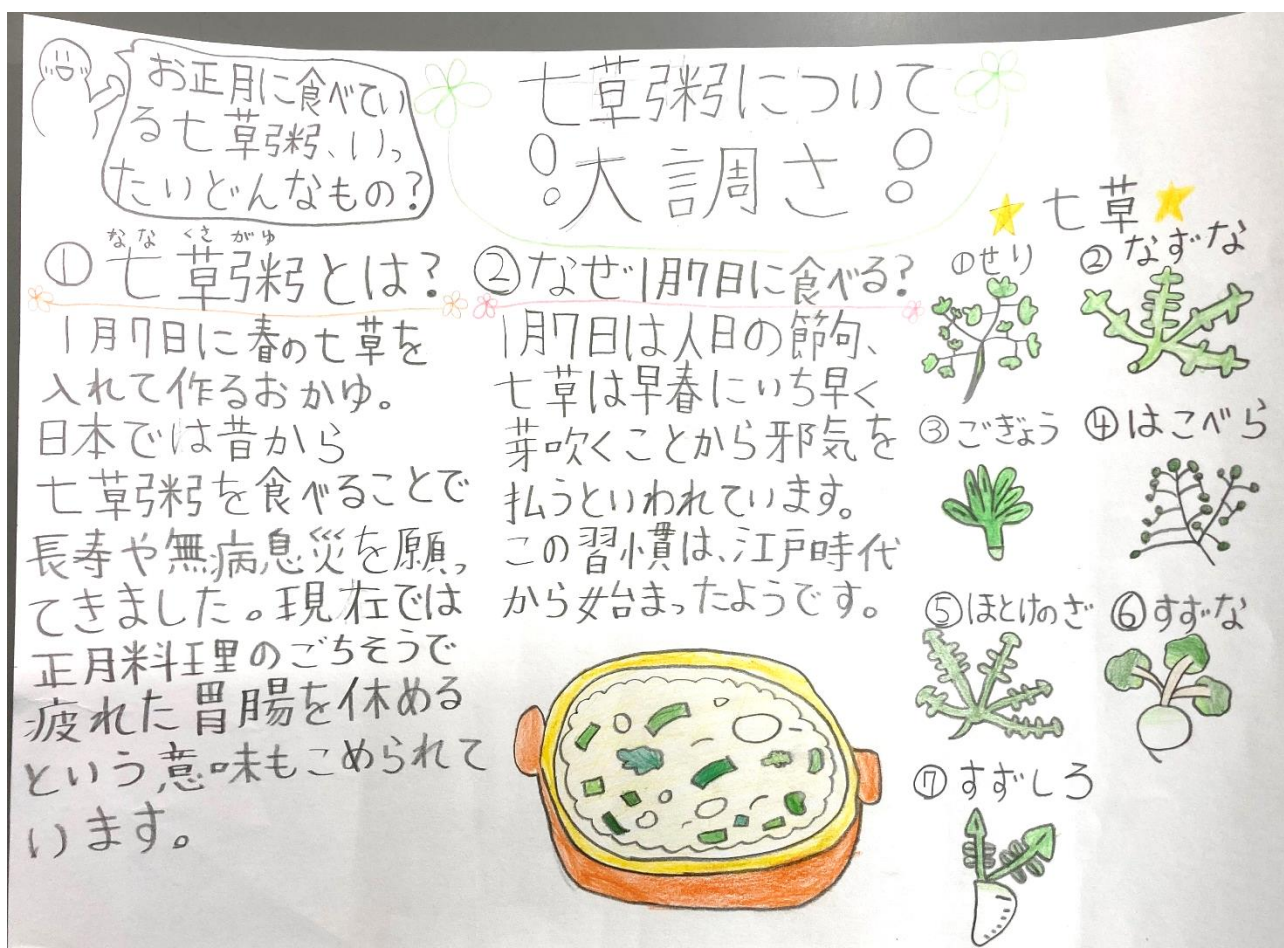 お正月に食べてい
る七草粥、いっ
たいどんなもの?
七草粥について
!大調さ!
①七草粥とは?
なな くさ がゆ
1月7日に春の七草を
入れて作るおかゆ。
日本では昔から
七草粥を食べることで
長寿や無病息災を願っ
てきました。現在では
正月料理のごちそうで
疲れた胃腸を休める
という意味もこめられて
います。
②なぜ1月7日に食べる?
1月7日は人日の節句、
七草は早春にいち早く
芽吹くことから邪気を
払うといわれています。
この習慣は、江戸時代
から始まったようです。
七草
①せり
②なずな
③ごぎょう
④はこべら
⑤ほとけのざ
⑥すずな
⑦すずしろ